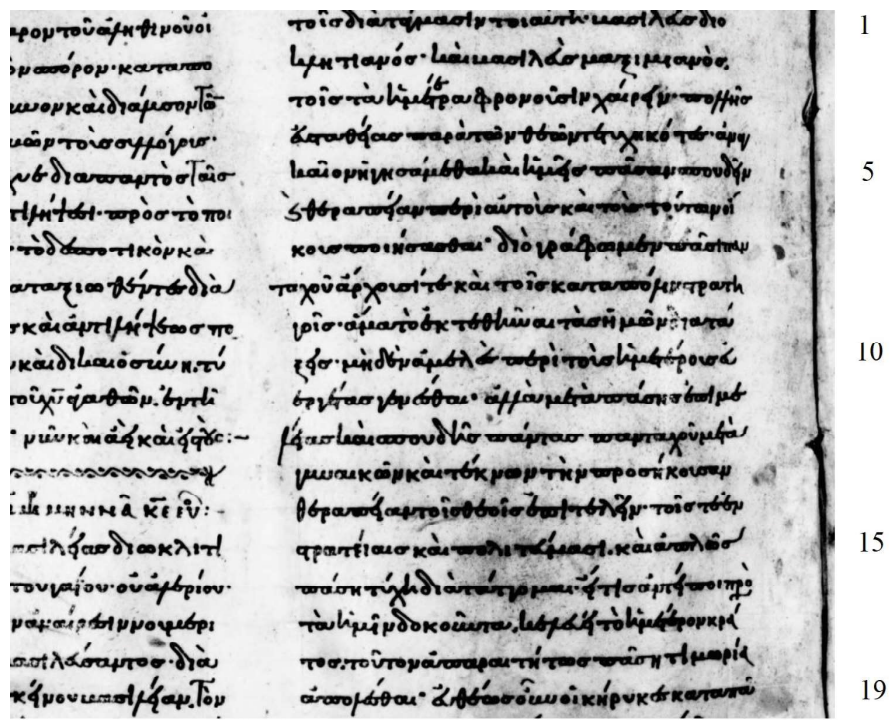 ρον τοῦ ἀληθινοῦ οἱ
σπόρον· καταπο
ον καὶ διάμεσον τὸ
ῶν τοῖς συλλόγοις·
διαπαντὸς ταῖς
τιλήψει· πρὸς τὸ ποι
τὸ δεσποτικὸν κα
αταξιωθέντες διὰ
ς καὶ ἀντιλήψεως πε
ν καὶ δικαιοσύνη. τύ
τοῦ χυ ἀγαθῶν. ἐν τι
νῦν καὶ ἀεὶ καὶ εἰς τοὺς:~
ΜΗΝΝΑ ΚΕ ΕΥ:
ασιλείας διοκλιτι
του γαίου· οὐαλερίου·
νουμερι
ασιλεύσαντος· διὰ
κείνου βασιλείαν. Τὸν
τοῖς διατάγμασιν τοιαύτη· βασιλεὺς διο
κλητιανός· καὶ βασιλεὺς μαξιμιανός.
τοῖς τὰ ἡμέτερα φρονοῦσιν χαίρειν· πολλῆς
εὐπαθείας παρὰ τῶν θεῶν τετυχηκότες· ἀναγ
καῖον ἡγησάμεθα καὶ ἡμεῖς πᾶσαν σπουδὴν
καὶ θεραπείαν περὶ αὐτοὺς καὶ τοὺς τούτων οἴ
κους ποιήσασθαι· διὸ γράφωμεν πᾶσι παν
ταχοῦ ἄρχουσί τε καὶ τοῖς κατὰ πόλιν στρατη
γοῖς· ἅμα τὸ ἐκτεθῆναι τὰς ἡμῶν διατά
ξεις· μηδένα ἀμελεῖς περὶ τοὺς ἡμετέρους εὐ
εργέτας γενέσθαι· ἀλλὰ μετὰ πάσης ἐπιμε
λείας καὶ σπουδῆς πάντας πανταχοῦ μετὰ
γυναικῶν καὶ τέκνων τὴν προσήκουσαν
θεραπείαν τοῖς θεοῖς ἐπιτελεῖν· τοῖς τε ἐν
στρατείαις καὶ πολιτεύμασι. καὶ ἁπλῶς
πάση τύχη εἴ τις ἀντείποι πρὸς
τὰ ἡμῖν δοκοῦντα, τὸ ἡμέτερον κρά
τος. τοῦτον ἀπαραιτήτως πάση τιμωρία
ἀπολέσθαι· εὐθέως οὖν οἱ κήρυκες κατὰ πα
1
5
10
15
19